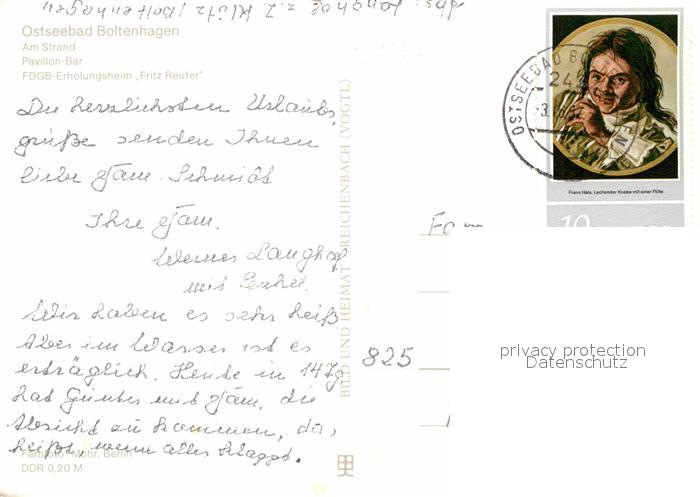 Abs: Langhof z.Z. Klütz/Boltenhagen
Ostseebad Boltenhagen
Am Strand
Pavillon-Bar
FDGB-Erholungsheim „Fritz Reuter"
Die herzlichsten Urlaubs
grüße senden Ihnen
liebe Fam. Schmidt
Ihre Fam.
Werner Langhof
mit Enkel.
Wir haben es sehr heiß
Aber im Wasser ist es
erträglich. Heute in 14 Tg
hat Günter mit Fam. die
Absicht zu kommen, da,
heißt, wenn alles klappt.
Farbfoto: Mohr, Berlin
DDR 0,20 M
BILD UND HEIMAT REICHENBACH (VOGTL)
OSTSEEBAD
24
Franz Hals, Lachender Knabe mit einer Flöte
10
Fam
825
privacy protection
Datenschutz